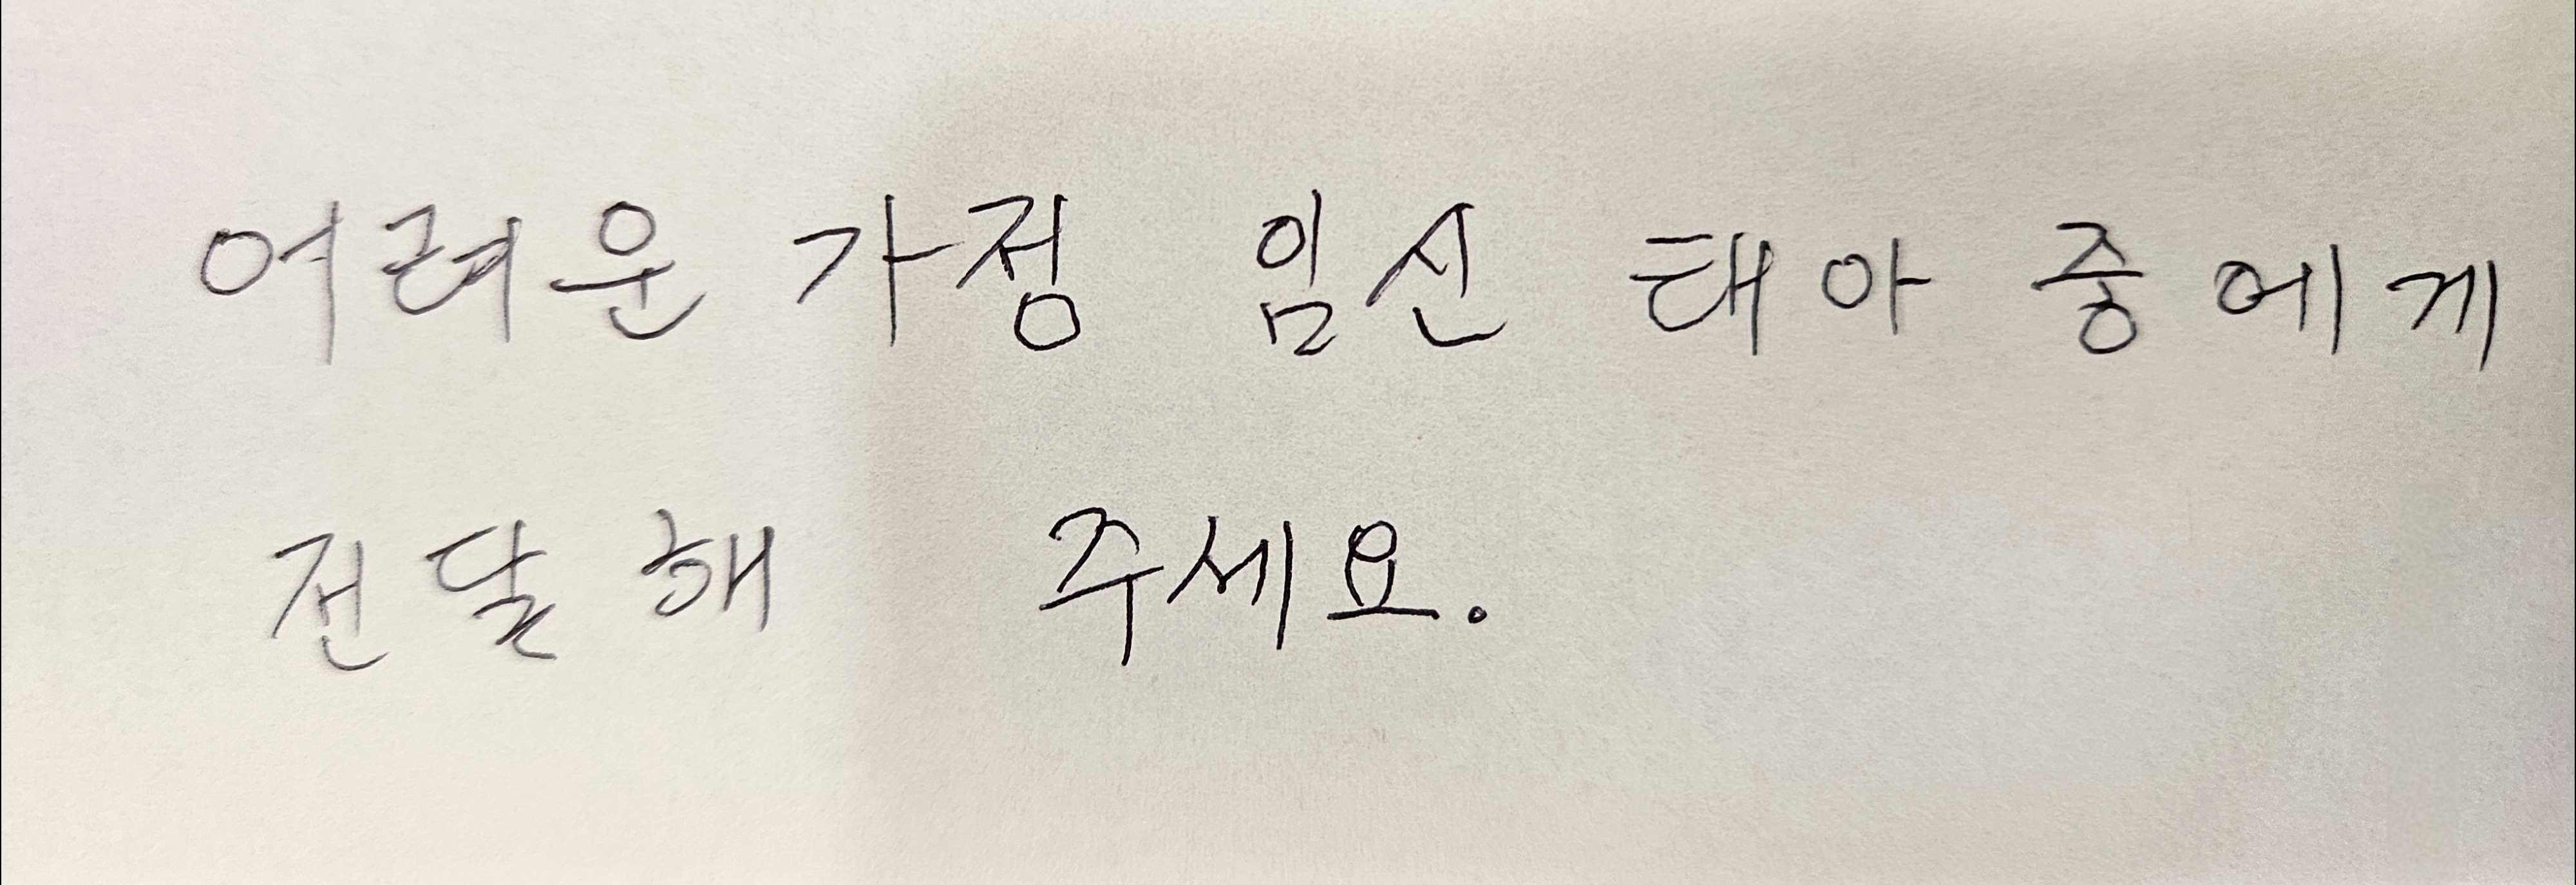 어려운 가정 임신 태아 중에게
전달해 주세요.